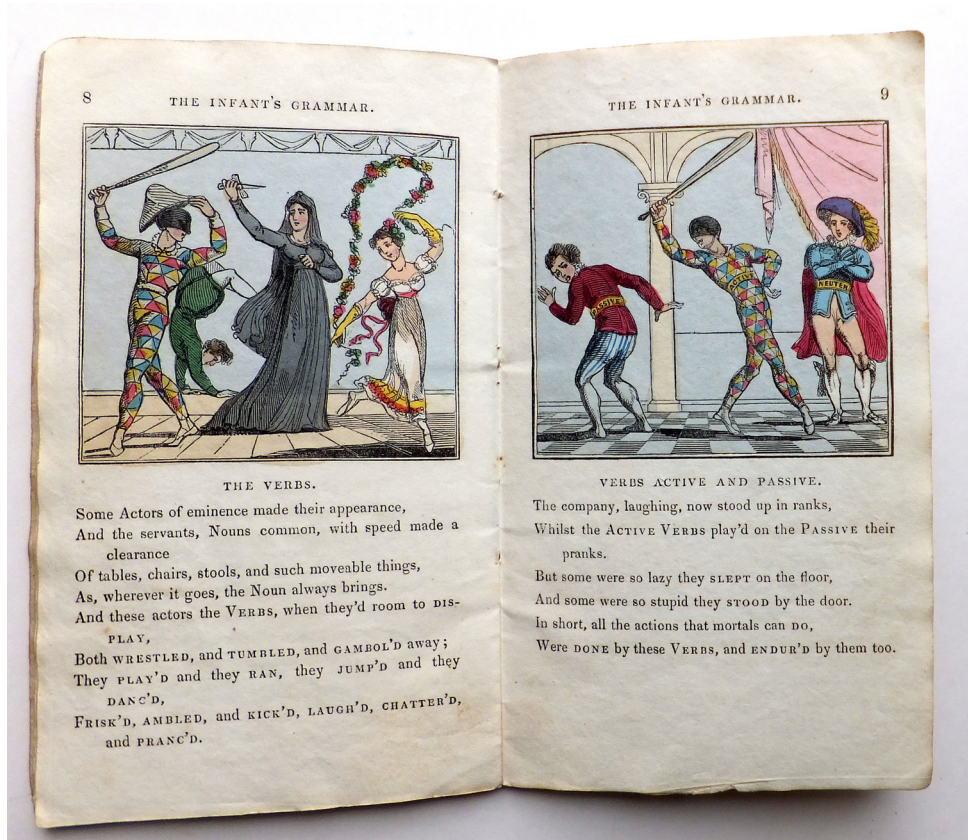 8
THE INFANT'S GRAMMAR.
THE VERBS.
Some Actors of eminence made their appearance,
And the servants, Nouns common, with speed made a
clearance
Of tables, chairs, stools, and such moveable things,
As, wherever it goes, the Noun always brings.
And these actors the VERBS, when they'd room to DIS-
PLAY,
Both WRESTLED, and TUMBLED, and GAMBOL'D away;
They PLAY'D and they RAN, they JUMP'D and they
DANC'D,
FRISK'D, AMBLED, and KICK'D, LAUGH'D, CHATTER'D,
and PRANC'D.
THE INFANT'S GRAMMAR.
9
PASSIVE
ACTIVE
NEUTER
VERBS ACTIVE AND PASSIVE.
The company, laughing, now stood up in ranks,
Whilst the ACTIVE VERBS play'd on the PASSIVE their
pranks.
But some were so lazy they SLEPT on the floor,
And some were so stupid they STOOD by the door.
In short, all the actions that mortals can DO,
Were DONE by these VERBS, and ENDUR'D by them too.